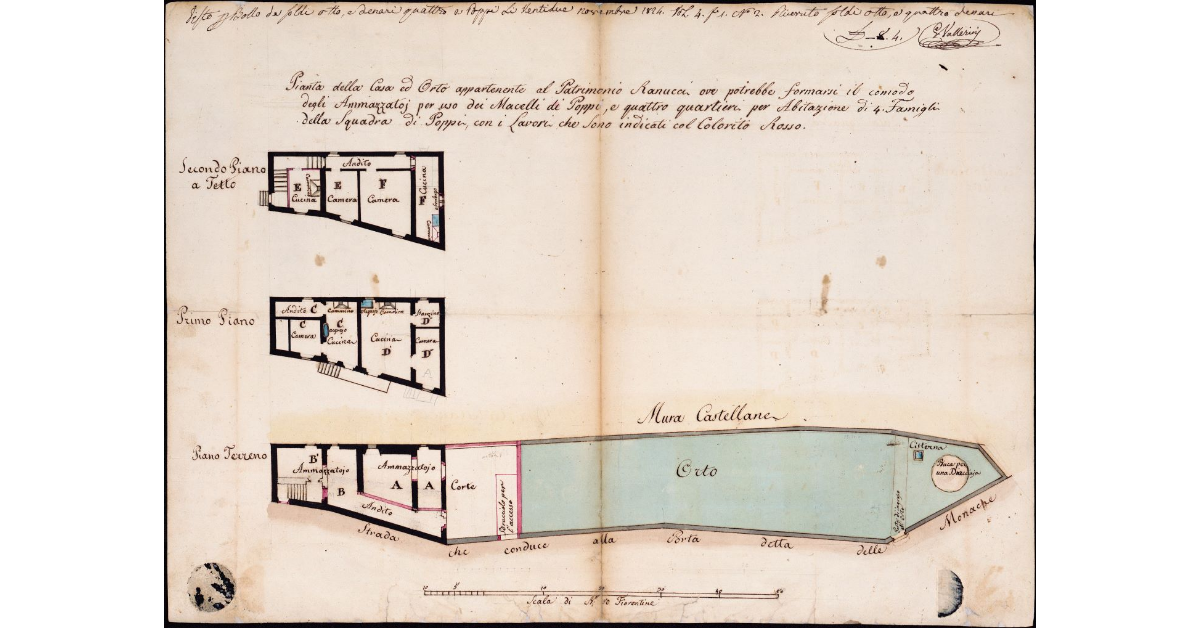 Poppi Li Ventidue novembre 1824. Vol. 4. f. 1. No. 2. Ricevuto soldi otto, e quattro denari
£ - 8. 4.
Pianta della Casa ed Orto appartenente al Patrimonio Ranucci ove potrebbe formarsi il comodo
degli Ammazzatoj per uso dei Macelli di Poppi, e quattro quartieri per Abitazione di 4. Famigli
della Squadra di Poppi, con i Lavori che sono indicati col Colorito Rosso.
Secondo Piano
a Tetto
Andito
E
Cucina
E
Camera
F
Camera
Cucina
F
Primo Piano
Andito C
Cammino
C
Camera
C
Cucina
Cucina
D
D
Camera
D
Mura Castellane
Piano Terreno
B
Ammazzatojo
B
Ammazzatojo
A
A
Andito
Corte
l'accesso
Orto
Cisterna
Buca per
una
Strada
che conduce alla Porta detta delle Monache
Scala di Fiorentine